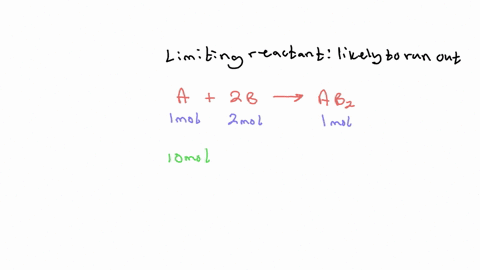 Limiting reactant: likely to run out
A + 2B → AB₂
1mol 2mol 1mol
10mol